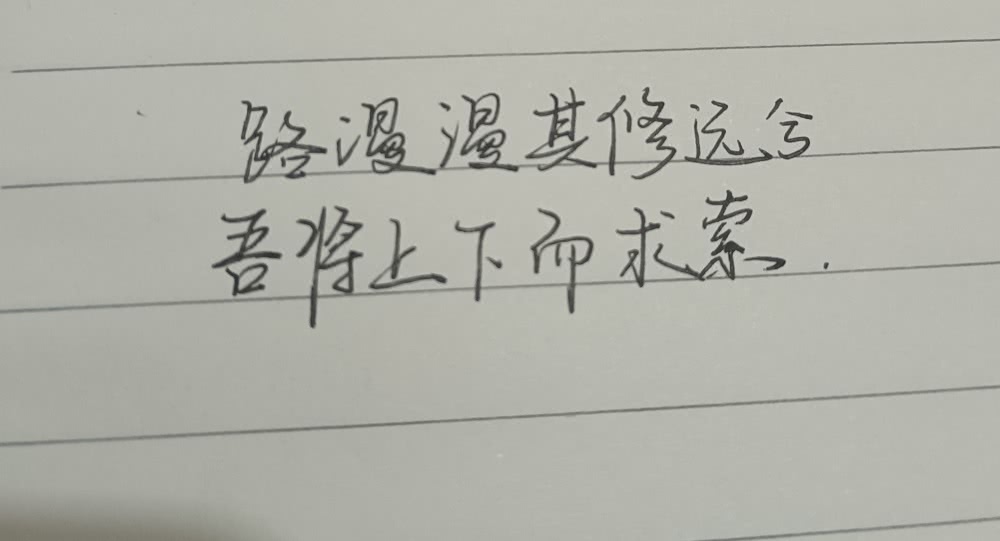 路漫漫其修远兮
吾将上下而求索.